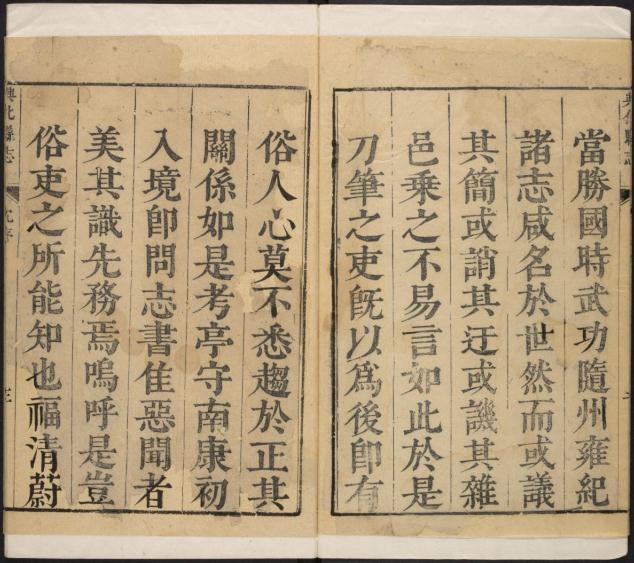 當勝國時武功隨州雍紀
諸志咸名於世然而或議
其簡或誚其迂或譏其雜
邑乘之不易言如此於是
刀筆之吏旣以爲後卽有
俗人心莫不悉趨於正其
關係如是考亭守南康初
入境卽問志書隹惡聞者
美其識先務焉嗚呼是豈
俗吏之所能知也福清蔚
興化縣志
序
三